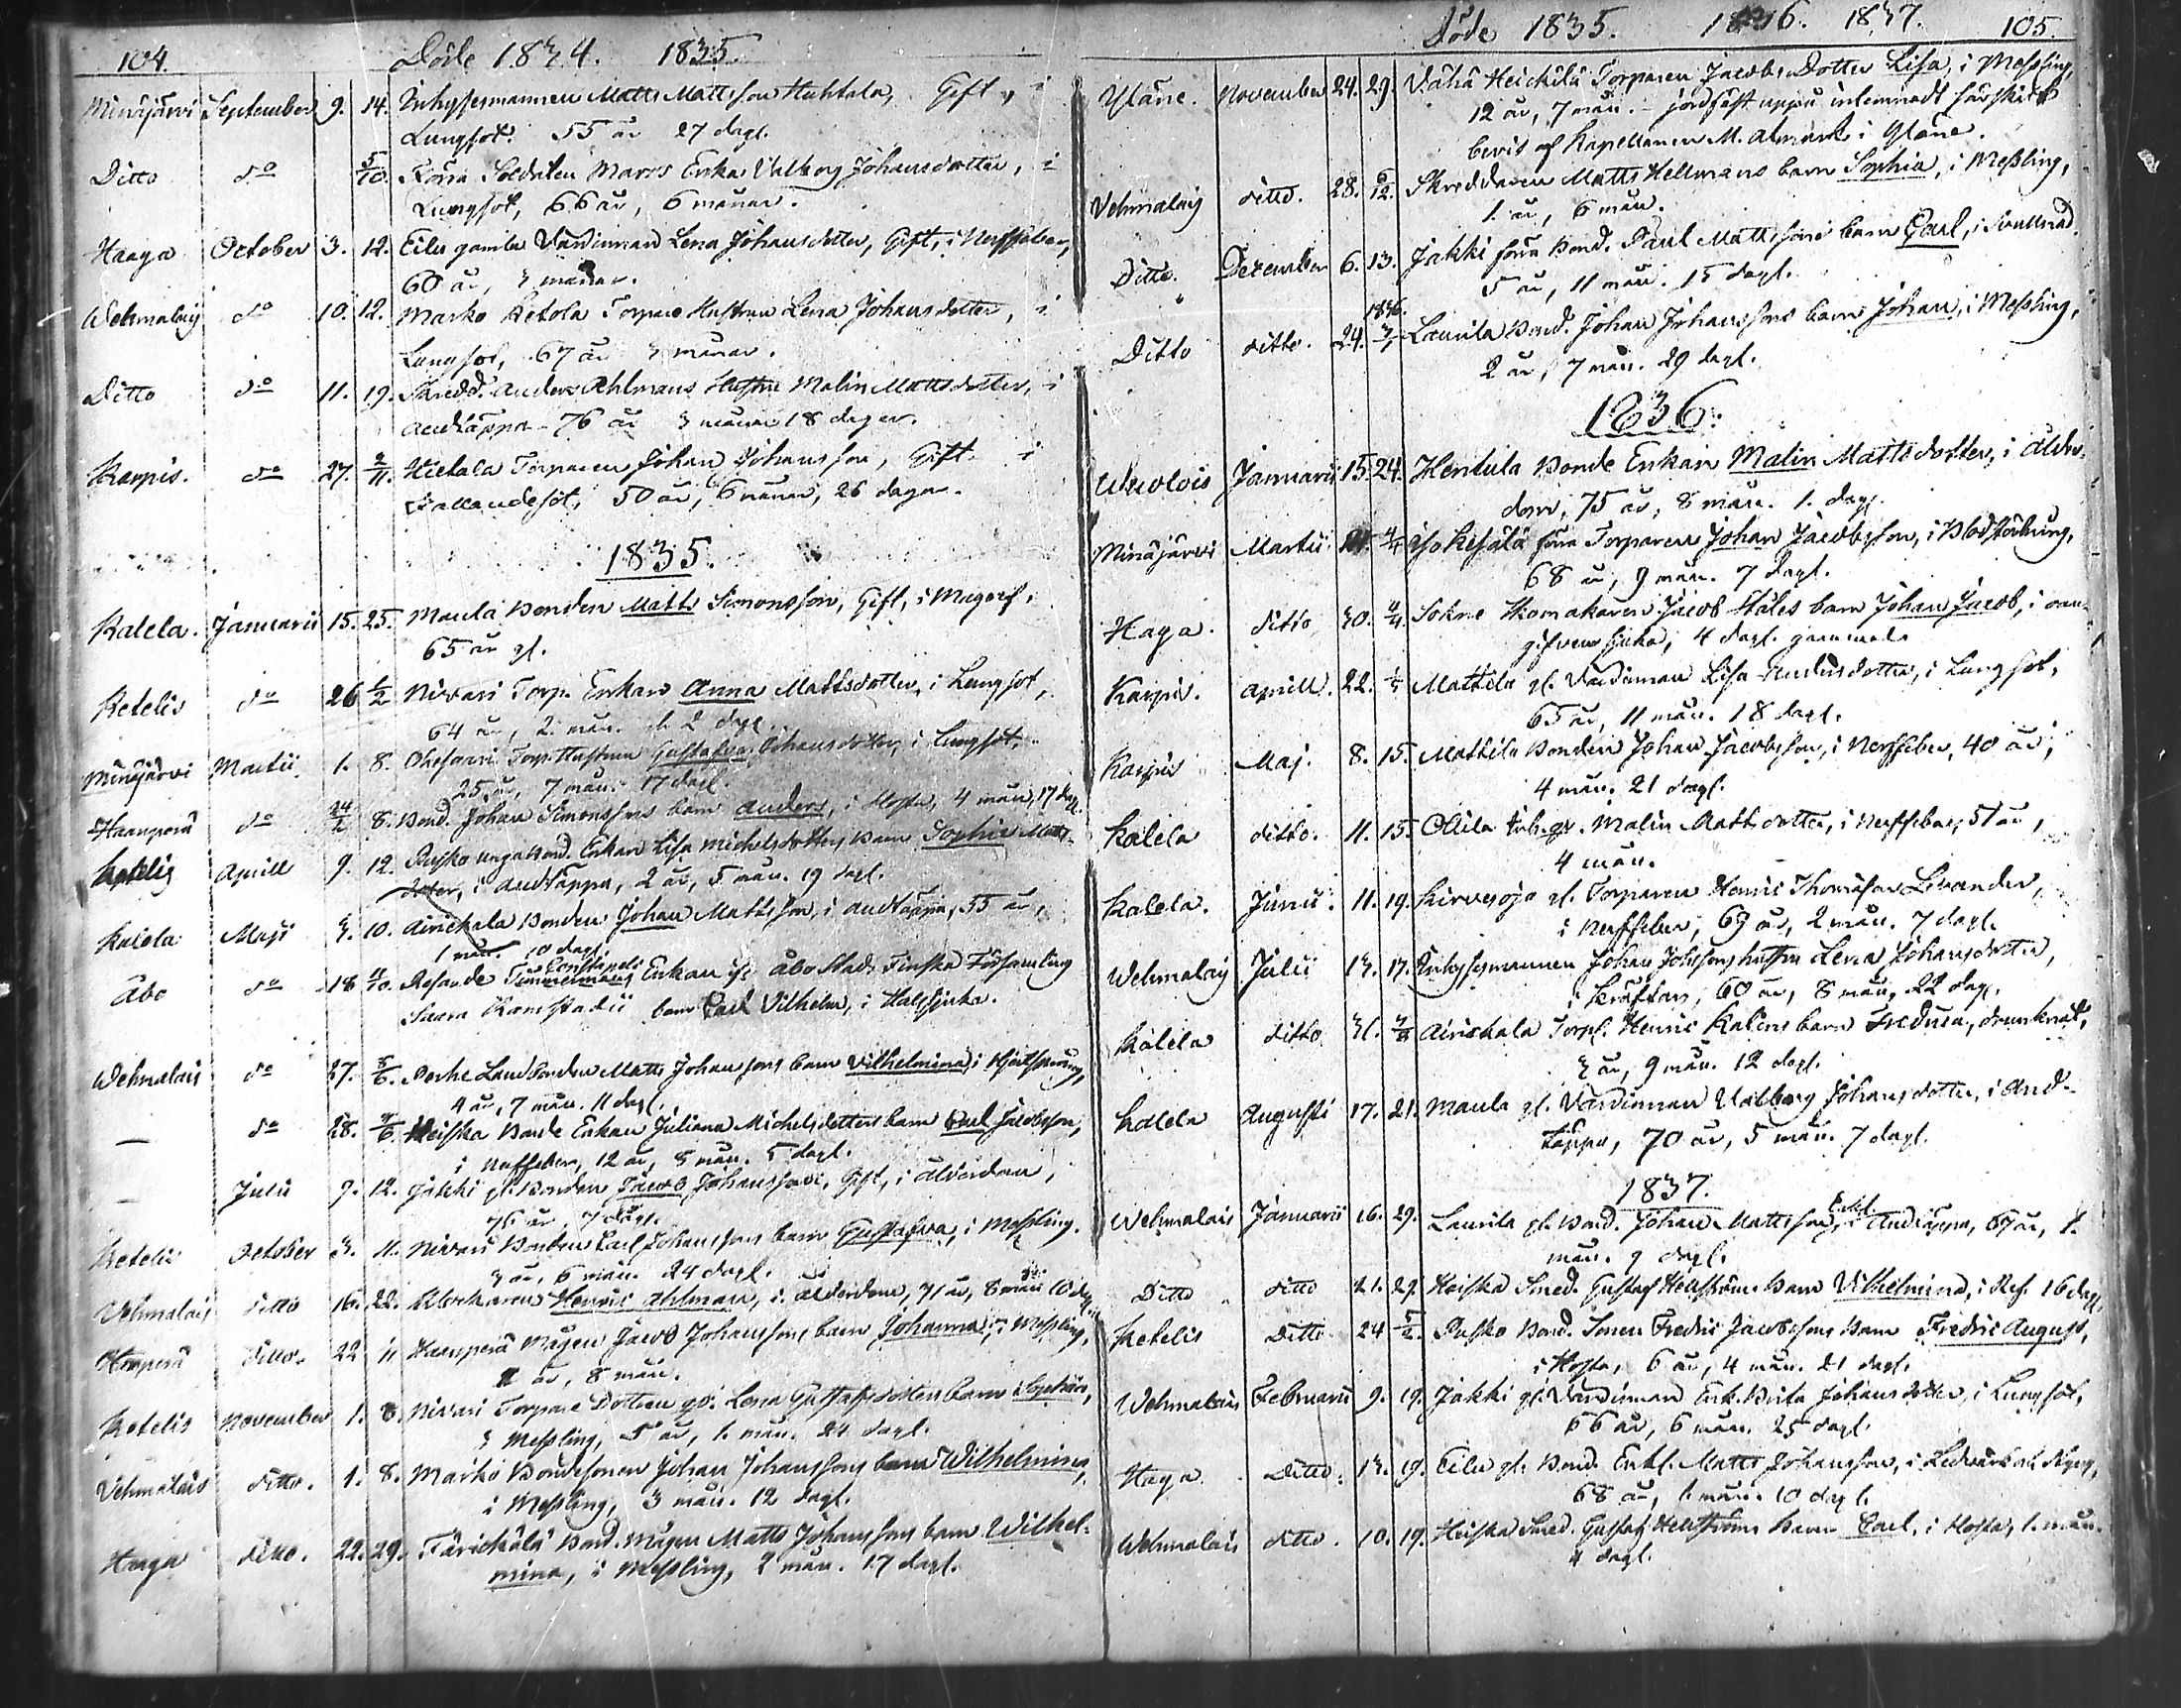 104. Döde 1834. 1835.
Minäjärvi September 9. 14. Inhysesmannen Matts Mattsson Huhtala, Gift, i
Lungsot. 55 år 27 dagl.
Ditto do 5/10. Förra Soldaten Enka Valborg Johansdotter, i
Lungsot, 66 år, 6 månar.
Haaga October 3. 12. Eilu gamla Värdinnan Lena Johansdotter, Gift, i Nerffeber,
60 år, 3 månar.
Wehmalaig do 10. 12. Marko Ketola Torpare Hustrun Lena Johansdotter, i
Lungsot, 67 år 3 månar.
Ditto do 11. 19. Skredd. Anders Ahlmans Hustru Malin Mattsdotter, i
Andtäppa 76 år 3 månar 18 dagar.
Karpis. do 27. 2/11. Hietala Torparen Johan Johansson, Gift i
Fallandesot, 50 år, 6 månar, 26 dagar.
1835.
Kalela. Januarii 15. 25. Maula Bonden Matts Simonsson, Gift, i Magref,
65 år gl.
Ketelis do 26 1/2 Nivari Torp. Enkan Anna Mattsdotter, i Lungsot,
64 år, 2 mån. 2 dagl.
Minäjärvi Martii. 1. 8. Torp. Hustrun Gustafva Johansdotter, i lungsot,
25 år, 7 mån. 17 dagl.
Haanperä do 24/2 8. Bond. Johan Simonssons barn Anders, i Hosta, 4 mån, 17 dagl.
Ketelis Aprill 9. 12. Pusko unga Bond. Enkan Lisa Michelsdotters barn Sophia Matts-
dotter, i andtäppa, 2 år, 5 mån. 19 dagl.
Kalela Maji 3. 10. Airickala Bonden Johan Mattsson, i andtäppa, 55 år,
1 mån. 10 dagl.
Constapels
Åbo do 18 Resande Timmermans Enkan ifr. Åbo Stads Finska Församling
Saara barn Carl Vilhelm, i Halssjuka.
Wehmalais do 27. 5/6. Landbonden Matts Johanssons barn Vilhelmina, i
4 år, 7 mån. 11 dagl.
— do 28. Heiska Bonde Enkan Juliana Michelsdotters barn Carl Jacobsson,
i Nerffeber, 12 år, 8 mån. 5 dagl.
— Julii 9. 12. Jakki gl. Bonden Jacob Johansson, Gift, i ålderdom,
75 år, 7 dagl.
Ketelis October 3. 11. Nivari Bonden Carl Johanssons barn Gustafva, i Meßling.
3 år, 6 mån. 24 dagl.
Vehmalais ditto 16. 22. Klockaren Henric Ahlman, i ålderdom, 71 år, 8 mån 10 dagl.
Hanperä ditto. 22 11 Haanperä Mågen Jacob Johanssons barn Johanna, i Meßling,
år, 8 mån.
Ketelis November 1. 8. Nivari Torpare Dottren Lena Gustafsdotters barn Sophia,
i Meßling, 5 år, 1 mån. 24 dagl.
Vehmalais ditto. 1. 8. Marko Bondesonen Johan Johanssons barn Wilhelmina,
i Meßling, 3 mån. 12 dagl.
Haaga ditto. 22. 29. Tärickälä Bond. Mågen Matts Johanssons barn Wilhel-
mina, i Meßling, 2 mån. 17 dagl.
Döde 1835. 1836. 1837. 105.
Yläne. November 24. 29. Vähä Heickilä Torparen Jacobs Dotter Lisa, i Meßling,
12 år, 7 mån. jordfäst uppå inlemnadt särskilt
bevis af Kapellanen M. Almark i Yläne.
Vehmalaig ditto. 28. 6/12. Skreddaren Matts Hellmans barn Sophia, i Meßling,
1 år, 6 mån.
Ditto. Dezember 6. 13. Jakki förra Bond. Paul Mattssons barn Carl, i
5 år, 11 mån. 15 dagl.
1836.
Ditto ditto. 24. 3/1 Laurila Bond. Johan Johanssons barn Johan, i Meßling,
2 år, 7 mån. 29 dagl.
1836.
Januarii 15. 24. Hentula Bonde Enkan Malin Mattsdotter, i ålder-
dom, 75 år, 8 mån. 1. dagl.
Minäjärvi Martii. 4/4 förra Torparen Johan Jacobsson, i Blodstörtning,
68 år, 9 mån. 7 dagl.
Haga. ditto 30. 4/4 Skomakaren Jacob Ståles barn Johan Jacob, i oan-
gifven sjuka, 4 dagl. gammal.
Karpis. Aprill. 22. 1/5 Mattila gl. Värdinnan Lisa Andersdotter, i Lungsot,
65 år, 11 mån. 18 dagl.
Karpis Maj. 8. 15. Mattila Bonden Johan Jacobsson, i Nerffeber, 40 år,
4 mån. 21 dagl.
Kalela ditto. 11. 15. Ollila Inh. Malin Mattsdotter, i nerffeber, 51 år,
4 mån.
Kalela. Junii. 11. 19. Kirvesoja gl. Torparen Henric Thomasson Levander,
i Nerffeber, 69 år, 2 mån. 7 dagl.
Wehmalaig Julii 13. 17. Inhysesmannen Johan Johanssons hustru Lena Johansdotter,
i Kräftan, 60 år, 8 mån. 22 dagl.
Kalela ditto 31. Airickala Torp. Henric Kaléns barn Fredrica, drunknat,
3 år, 9 mån. 12 dagl.
Kalela Augusti 17. 21. Maula gl. Värdinnan Valborg Johansdotter, i and-
täppa, 70 år, 5 mån. 7 dagl.
1837.
Wehmalais Januarii 16. 29. Laurila gl. Bond. Johan Mattsson, Enkl. i Andtäppa, 67 år, 8.
mån. 9 dagl.
Ditto ditto 21. 29. Heiska Smed. Gustaf Hellströms barn Vilhelmina, i Ref. 16 dagl.
Ketelis Ditto. 24 5/2. Pusko Bond. Sonen Fredric Jacobssons Barn Fredric August,
i Hosta, 6 år, 4 mån. 21 dagl.
Wehmalais Februarii 9. 19. Jakki gl. Värdinnan Enk. Brita Johansdotter, i Lungsot,
66 år, 6 mån. 25 dagl.
Haga Ditto. 13. 19. Eilu gl. Bond. Enkl. Matts Johansson, i Ledvärk
68 år, 1 mån. 10 dagl.
Wehmalais ditto. 10. 19. Heiska Smed. Gustaf Hellströms barn Carl, i Hosta, 1. mån.
4 dagl.